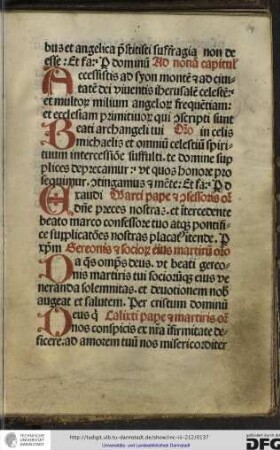 bus et angelica p̄stitisti suffragia non de
esse: Et fa: P dominū Ad nonā capitul
Accessistis ad syon montē ⁊ ad ciui
tatē dei viuentis iherusalē celestē:
et multor milium angelor frequētiam:
et ecclesiam primitiuor qui ↄscripti sunt
Beati archangeli tui Oro in celis
michaelis et omniū celestiū spiri
tuum intercessiōe suffulti. te domine sup
plices deprecamur: vt quos honore pro
sequimur. ↄtingamus ⁊ mēte: Et fa: P d
Exaudi Marci pape ⁊ ↄfessoris or̄
dn̄e preces nostras. et itercedente
beato marco confessore tuo atqꝫ pontifi
ce supplicatōes nostras placatꝰ itende. P
xp̄m Gereonis ⁊ socioꝝ eius martirū oro
Da qs̄ omp̄s deus. vt beati gereo
nis martiris tui sociorūqꝫ eius ve
neranda solemnitas. et deuotionem nob
augeat et salutem. Per cristum dominū
Deus q̄ Calixti pape ⁊ martiris or̄
nos conspicis ex nr̄a ifirmitate de
ficere. ad amorem tuū nos misericorditer
TECHNISCHE
UNIVERSITÄT
DARMSTADT
http://tudigit.ulb.tu-darmstadt.de/show/inc-iii-212/0137
Universitäts- und Landesbibliothek Darmstadt
gefördert durch die
DFG